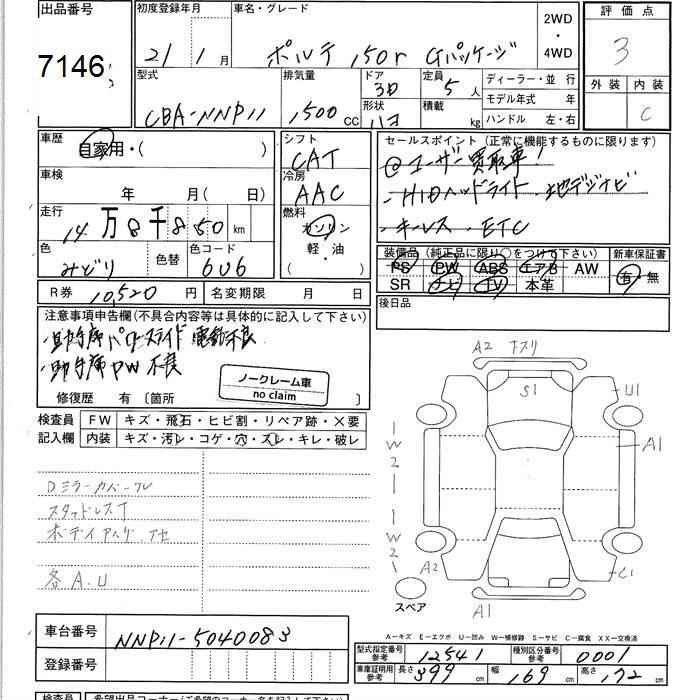 出品番号
7146
初度登録年月
21年1月
車名・グレード
ポルテ 150r Gパッケージ
2WD
・
4WD
評価点
3
外装 内装
C
型式
CBA-NNP11
排気量
1500 cc
ドア
3D
形状
定員
5人
積載
kg
ディーラー・並 行
モデル年式 年
ハンドル 左・右
車歴
自家用・( )
車検
年 月( 日)
走行
14万8千850km
色
みどり
色替
色コード
6U6
シフト
CAT
冷房
AAC
燃料
ガソリン
軽・油
( )
セールスポイント(正常に機能するものに限ります)
@ユーザー買取車!
・HIDヘッドライト・地デジナビ
・キーレス・ETC
装備品(純正品に限り○をつけて下さい)
PS PW ABS エアB AW
SR ナビ TV 本革
新車保証書
有・無
後日品
R券 10,520円 名変期限 月 日
注意事項申告欄(不具合内容等は具体的に記入して下さい)
・助手席パワースライド電動不良
・助手席PW不良
ノークレーム車
no claim
修復歴 有〔箇所 〕
検査員
記入欄
FW キズ・飛石・ヒビ割・リペア跡・×要
内装 キズ・汚レ・コゲ・穴・スレ・キレ・破レ
Dミラーカバーワレ
スタッドレスT
各A.U
A2 下スリ
S1
U1
A1
W2
W2
A2
A1
スペア
A-キズ E-エクボ U-凹み W-補修跡 S-サビ C-腐食 XX-交換済
車台番号 NNP11-5040083
登録番号
型式指定番号
参考
12541
種別区分番号
参考
0001
車庫証明用
参考
長さ 399cm 幅 169cm 高さ 172cm
検査員 希望出品コーナー(ご希望のコーナー名を記入して下さい)